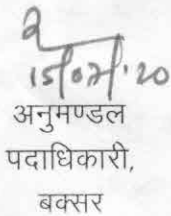 15/07/20
अनुमण्डल
पदाधिकारी,
बक्सर